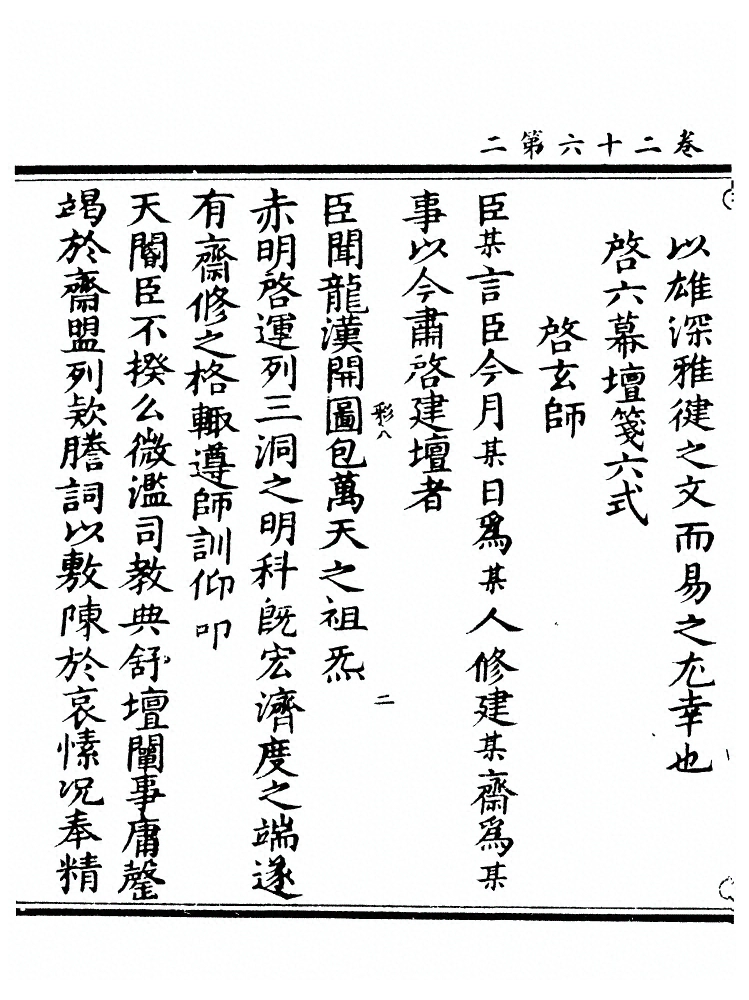 卷二十六第二
以雄深雅健之文而易之尤幸也
啓六幕壇箋六式
啓玄師
臣某言臣今月某日爲某人修建某齋爲某
事以今肅啓建壇者
彩八
二
臣聞龍漢開圖包萬天之祖炁
赤明啓運列三洞之明科旣宏濟度之端遂
有齋修之格輙遵師訓仰叩
天閽臣不揆么微濫司教典舒壇闡事庸罄
竭於齋盟列欵謄詞以敷陳於哀愫况奉精